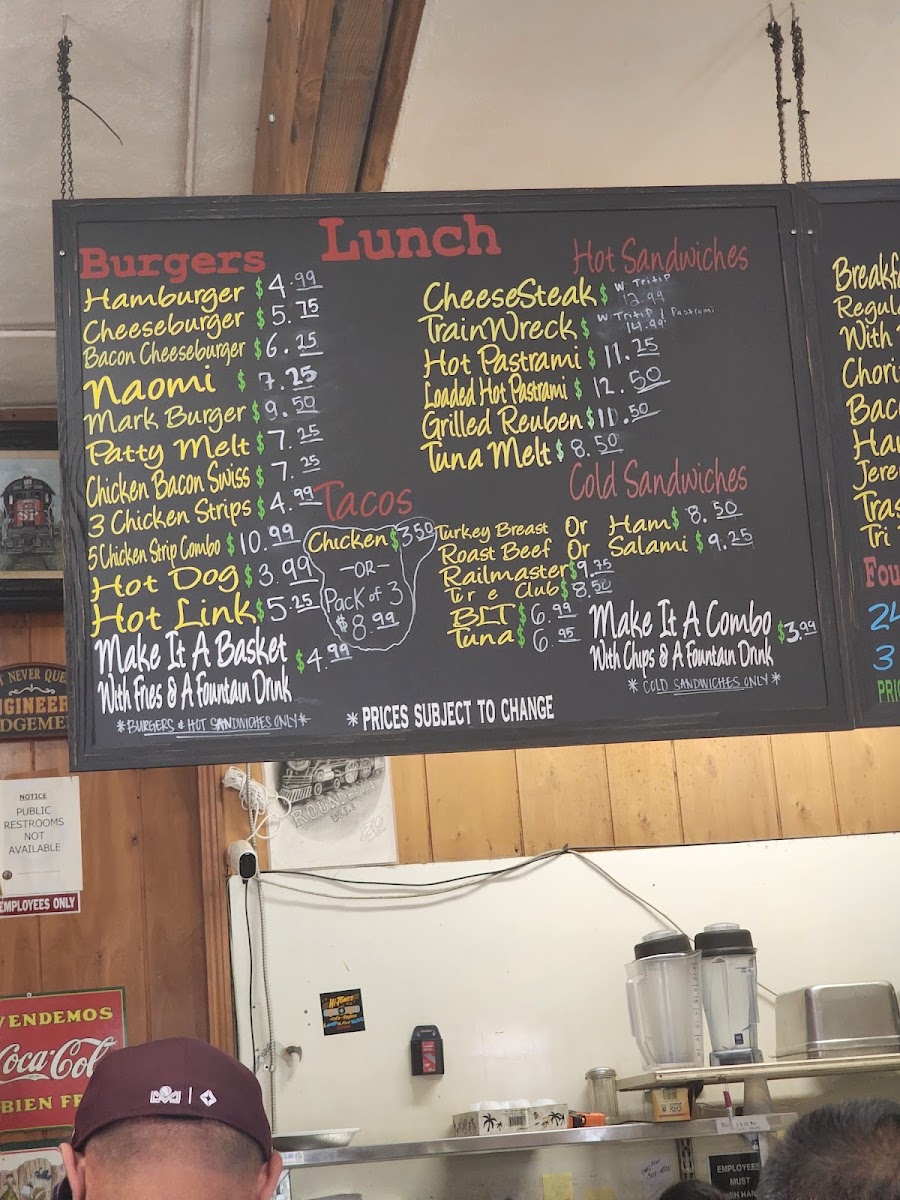 Lunch
Burgers
Hamburger $4.99
Cheeseburger $5.75
Bacon Cheeseburger $6.25
Naomi $7.25
Mark Burger $9.50
Patty Melt $7.25
Chicken Bacon Swiss $7.25
3 Chicken Strips $4.99
5 Chicken Strip Combo $10.99
Hot Dog $3.99
Hot Link $5.25
Make It A Basket
With Fries & A Fountain Drink $4.99
*BURGERS & HOT SANDWICHES ONLY*
Tacos
Chicken $3.50
-OR-
Pack of 3
$8.99
*PRICES SUBJECT TO CHANGE
Hot Sandwiches
CheeseSteak $ W TriTip 12.99
TrainWreck $ W TriTip & Pastrami 14.99
Hot Pastrami $11.25
Loaded Hot Pastrami $12.50
Grilled Reuben $11.50
Tuna Melt $8.50
Cold Sandwiches
Turkey Breast Or Ham $8.50
Roast Beef Or Salami $9.25
Railmaster $9.75
T r e Club $8.50
BLT $6.99
Tuna $6.95
Make It A Combo
With Chips & A Fountain Drink $3.99
*COLD SANDWICHES ONLY*
Breakf
Regula
With
Chori
Baco
Ha
Jere
Tras
Tri
Fou
24
3
PRIC
SP
T NEVER QUE
GINEER
DGEME
NOTICE
PUBLIC
RESTROOMS
NOT
AVAILABLE
EMPLOYEES ONLY
VENDEMOS
Coca-Col
BIEN FR
EMPLOYEES
MUST